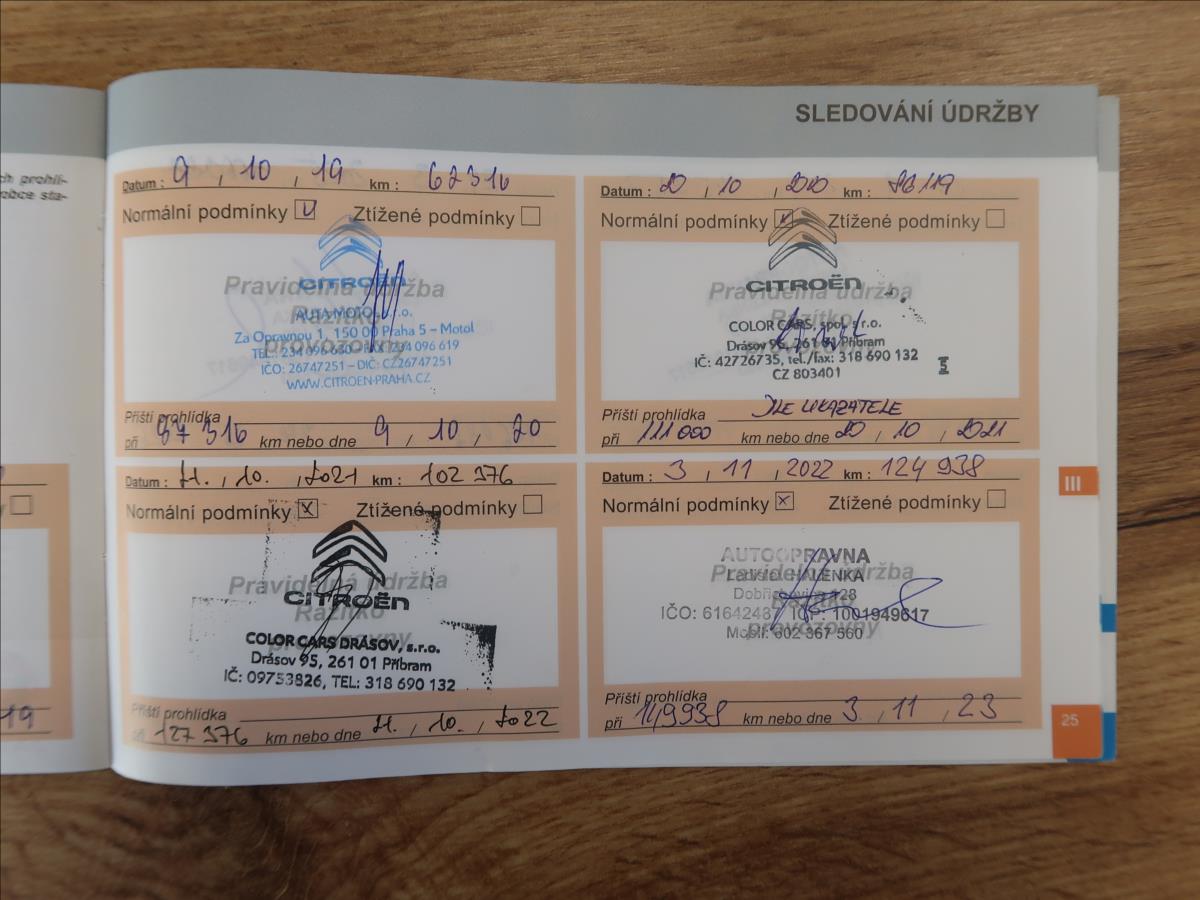 SLEDOVÁNÍ ÚDRŽBY
ch prohlí-
obce sta-
Datum : 9 , 10 , 19 km : 62316
Normální podmínky Ztížené podmínky
CITROËN
Pravidelná údržba
Razítko
provozovny
Za Opravnou 1, 150 00 Praha 5 – Motol
TEL.: 234 096 630 FAX 234 096 619
IČO: 26747251 – DIČ: CZ26747251
WWW.CITROEN-PRAHA.CZ
Příští prohlídka
při 87 316 km nebo dne 9 , 10 , 20
Datum : 20 , 10 , 2020 km : 86119
Normální podmínky Ztížené podmínky
CITROËN
Pravidelná údržba
Razítko
COLOR CARS, spol. s r.o.
Drásov 95, 261 01 Příbram
IČ: 42726735, tel./fax: 318 690 132
CZ 803401
Příští prohlídka DLE UKAZATELE
při 111 000 km nebo dne 20 , 10 , 2021
Datum : 21. , 10. , 2021 km : 102 376
Normální podmínky X Ztížené podmínky
Pravidelná údržba
CITROËN
Razítko
provozovny
COLOR CARS DRÁSOV, s.r.o.
Drásov 95, 261 01 Příbram
IČ: 09753826, TEL: 318 690 132
Příští prohlídka
při 127 376 km nebo dne 21. , 10. , 2022
Datum : 3 , 11 , 2022 km : 124 938
Normální podmínky X Ztížené podmínky
AUTOOPRAVNA
Pravidelná údržba
Ladislav HALENKA
Razítko
IČO: 6164248 IČP: 1001949617
provozovny
Mobil: 602 367 560
Příští prohlídka
při 149938 km nebo dne 3. , 11 , 23
19
III
25